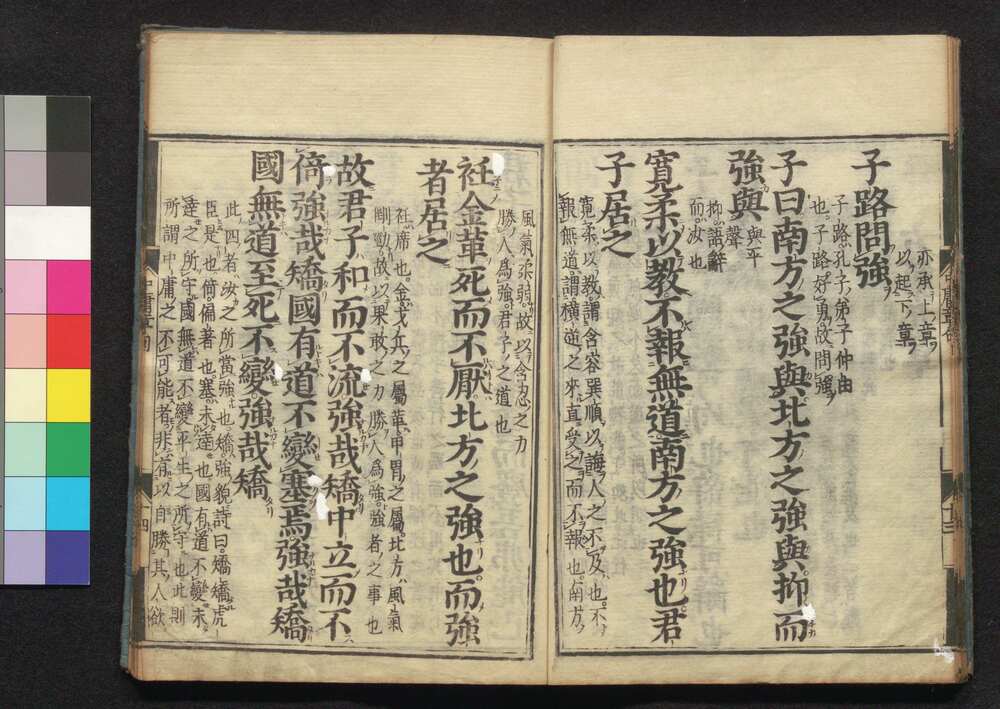 亦承上章
以起下章
子路問強
子路孔子弟子仲由
也子路好勇故問強
子曰南方之強與北方之強與抑而
強與
與平聲
抑語辭
而汝也
寬柔以教不報無道南方之強也君
子居之
寬柔以教謂含容巽順以誨人之不及也不
報無道謂橫逆之來直受之而不報也南方
風氣柔弱故以含忍之力
勝人爲強君子之道也
衽金革死而不厭北方之強也而強
者居之
衽席也金戈兵之屬革甲冑之屬北方風氣
剛勁故以果敢之力勝人爲強強者之事也
故君子和而不流強哉矯中立而不
倚強哉矯國有道不變塞焉強哉矯
國無道至死不變強哉矯
此四者汝之所當強也矯強貌詩曰矯矯虎
臣是也倚偏著也塞未達也國有道不變未
達之所守國無道不變平生之所守也此則
所謂中庸之不可能者非有以自勝其人欲
十四